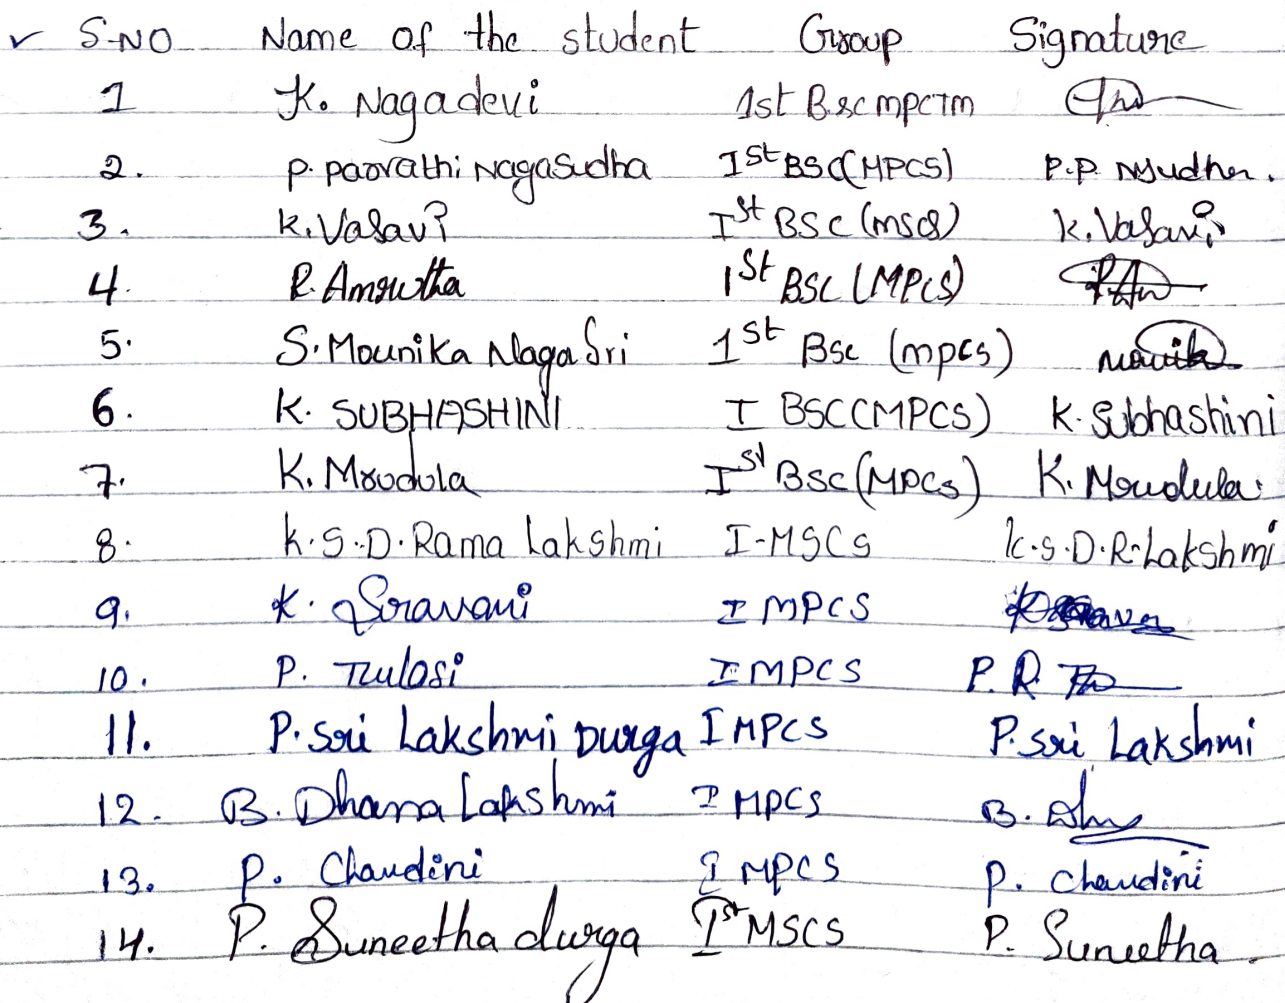 ✓ S.NO Name of the student Group Signature
1 K. Nagadevi 1st B.sc mpctm
2. P. Parvathi Nagasudha Ist BSC(MPCS) P.P. Nsudha.
3. K. Vasavi Ist BSC (mscs) K. Vasavi
4. R. Amrutha 1st BSC (MPCS)
5. S. Mounika Naga Sri 1st Bsc (mpcs) Mounika
6. K. SUBHASHINI I BSC(MPCS) K. Subhashini
7. K. Mrudula Ist BSC (MPCS) K. Mrudula
8. K.S.D. Rama Lakshmi I-MSCS K.S.D.R. Lakshmi
9. K. Sravani I MPCS
10. P. Tulasi I MPCS P. R
11. P. Sri Lakshmi Durga I MPCS P. Sri Lakshmi
12. B. Dhana Lakshmi I MPCS B.
13. P. Chandini I MPCS P. Chandini
14. P. Suneetha durga Ist MSCS P. Suneetha.